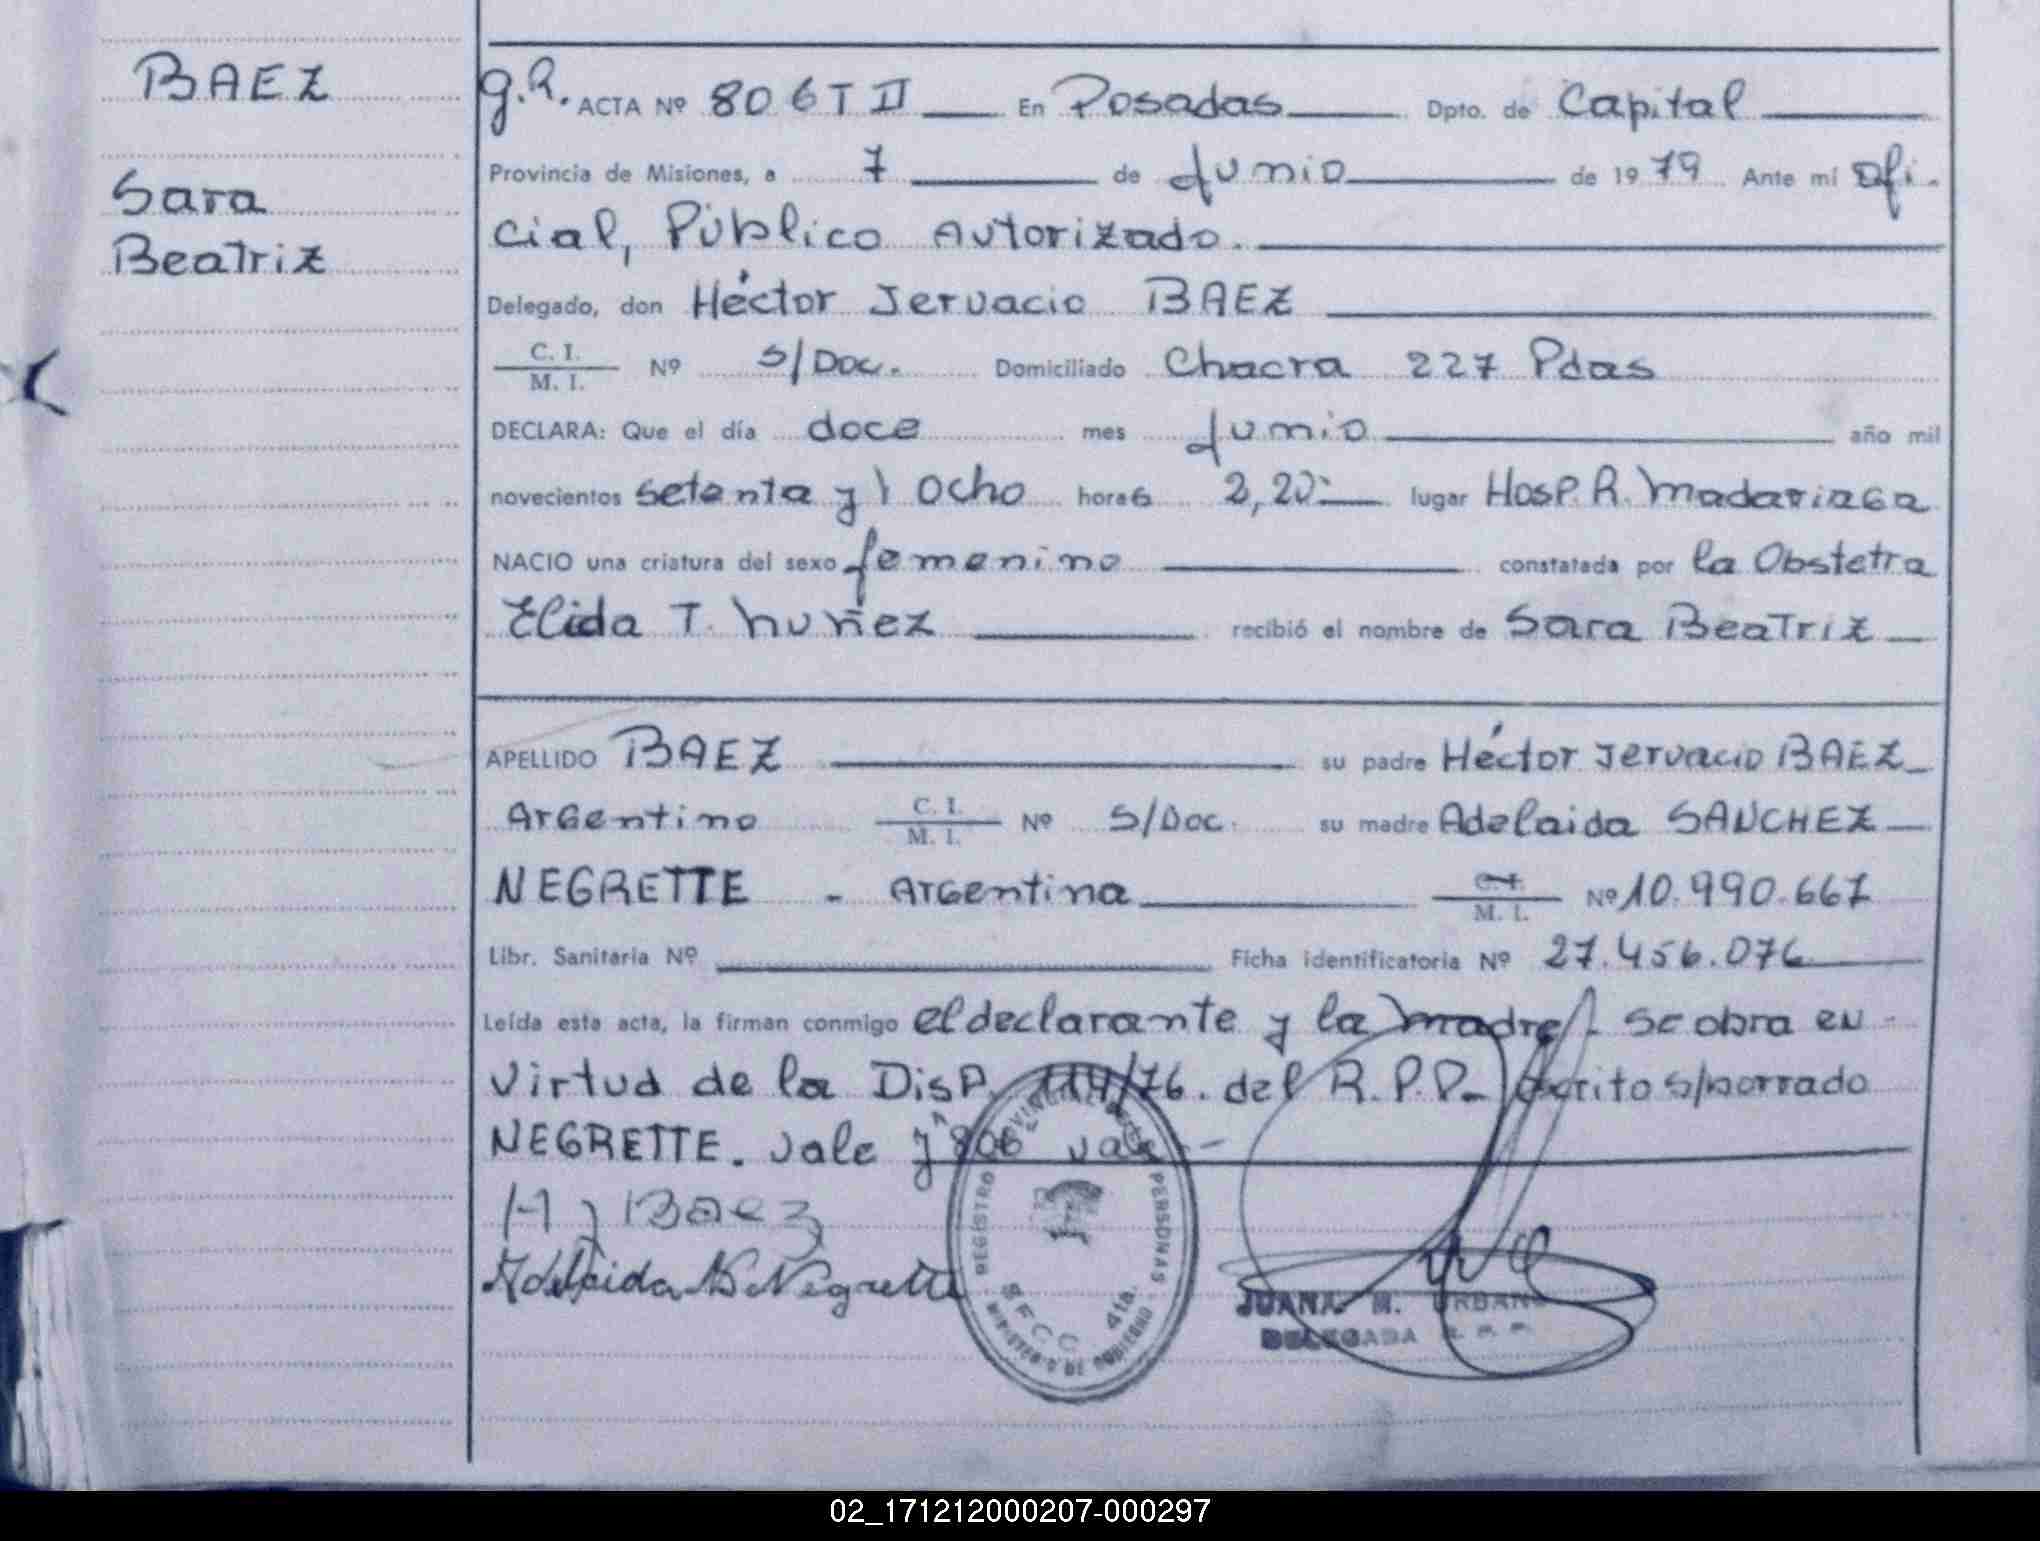 BAEZ
Sara
Beatriz
G.R. ACTA Nº 806 T II En Posadas Dpto. de Capital
Provincia de Misiones, a 7 de Junio de 1979 Ante mí Ofi-
cial, Público Autorizado.
Delegado, don Héctor Jervacio BAEZ
C. I. / M. I. Nº S/Doc. Domiciliado Chacra 227 Pdas
DECLARA: Que el día doce mes Junio año mil
novecientos setenta y ocho horas 2,20 lugar Hosp. R. Madariaga
NACIO una criatura del sexo femenino constatada por la Obstetra
Elida T. Nuñez recibió el nombre de Sara Beatriz
APELLIDO BAEZ su padre Héctor Jervacio BAEZ
Argentino C. I. / M. I. Nº S/Doc. su madre Adelaida SANCHEZ
NEGRETTE - Argentina C. I. / M. I. Nº 10.990.667
Libr. Sanitaria Nº Ficha identificatoria Nº 27.456.076
Leída esta acta, la firman conmigo el declarante y la madre - se obra en
virtud de la Disp. 114/76. del R.P.P. - escrito s/borrado
NEGRETTE. vale y 806 vale -
H J Baez
Adelaida S Negrette
REGISTRO PROVINCIAL DE LAS PERSONAS
SECC 4ta.
MINISTERIO DE GOBIERNO
JUANA M. URBAN
DELEGADA R. P. P.
02_171212000207-000297